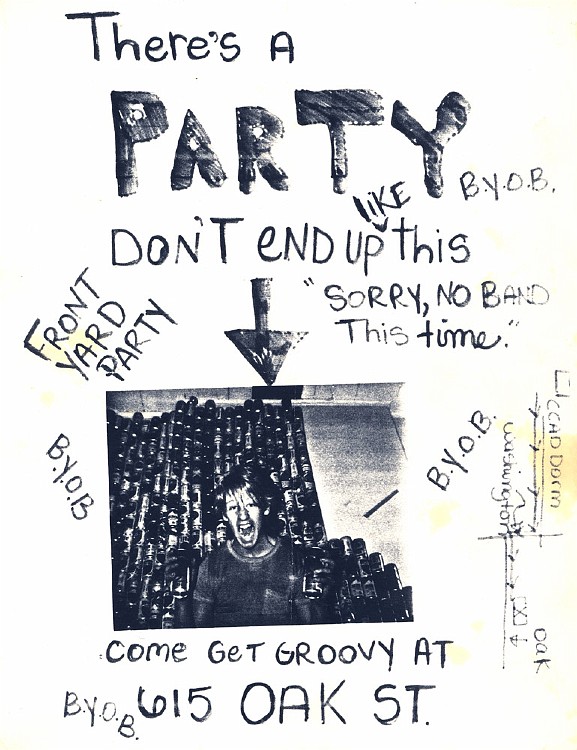 There's A
PARTY
B.Y.O.B.
DON'T END UP LIKE this
"SORRY, NO BAND
This time."
FRONT
YARD
PARTY
B.Y.O.B
B.Y.O.B.
CCAD Dorm
Washington
Oak
COME GET GROOVY AT
B.Y.O.B.
615 OAK ST.